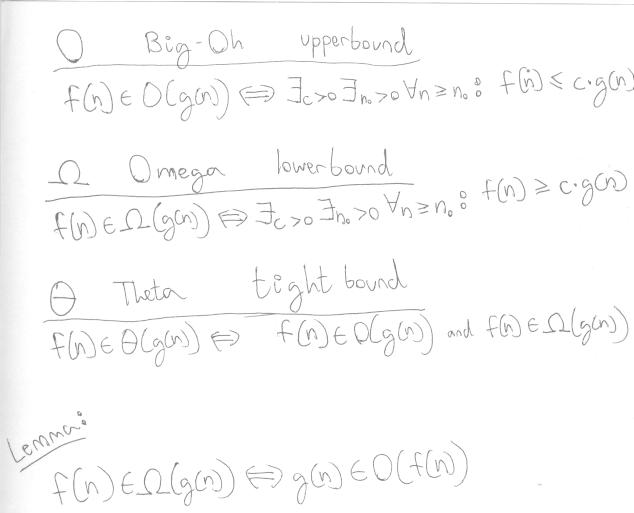 O Big-Oh upperbound
f(n) ∈ O(g(n)) ⇔ ∃c>0 ∃n₀>0 ∀n≥n₀: f(n) ≤ c·g(n)
Ω Omega lowerbound
f(n) ∈ Ω(g(n)) ⇔ ∃c>0 ∃n₀>0 ∀n≥n₀: f(n) ≥ c·g(n)
Θ Theta tight bound
f(n) ∈ Θ(g(n)) ⇔ f(n) ∈ O(g(n)) and f(n) ∈ Ω(g(n))
Lemma:
f(n) ∈ Ω(g(n)) ⇔ g(n) ∈ O(f(n))